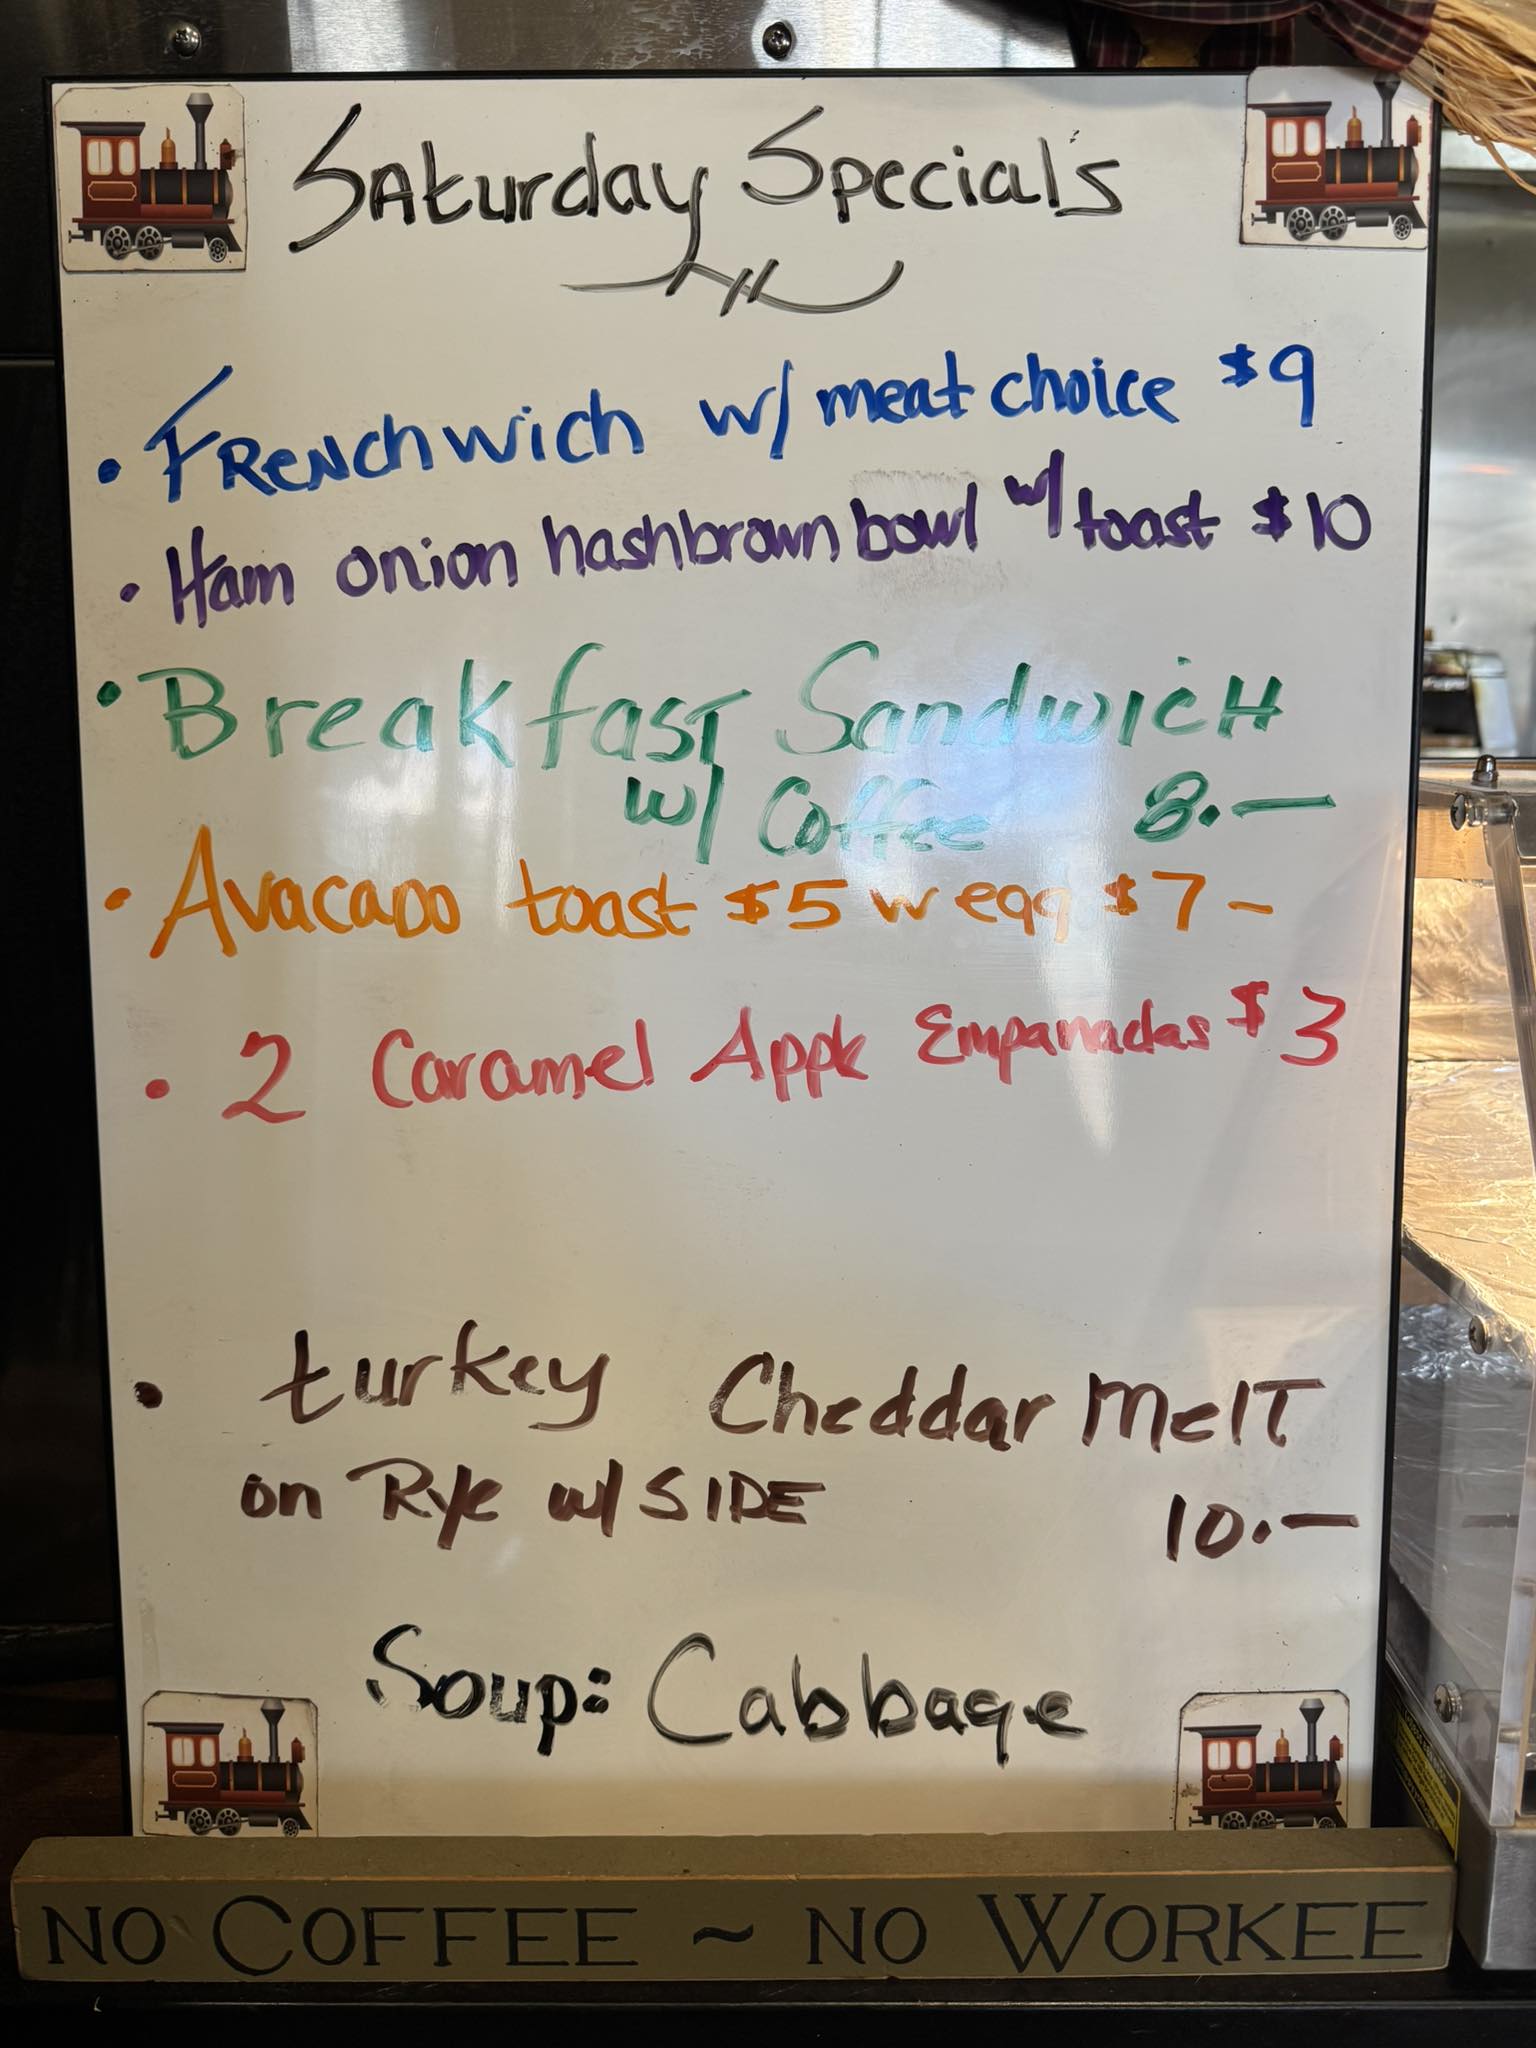 Saturday Special's
• Frenchwich w/ meat choice $9
• Ham onion hashbrown bowl w/ toast $10
• Breakfast Sandwich
w/ Coffee 8.—
• Avacado toast $5 w egg $7 –
• 2 Caramel Apple Empanadas $3
• turkey Cheddar Melt
on Rye w/ SIDE 10.—
Soup: Cabbage
NO COFFEE ~ NO WORKEE